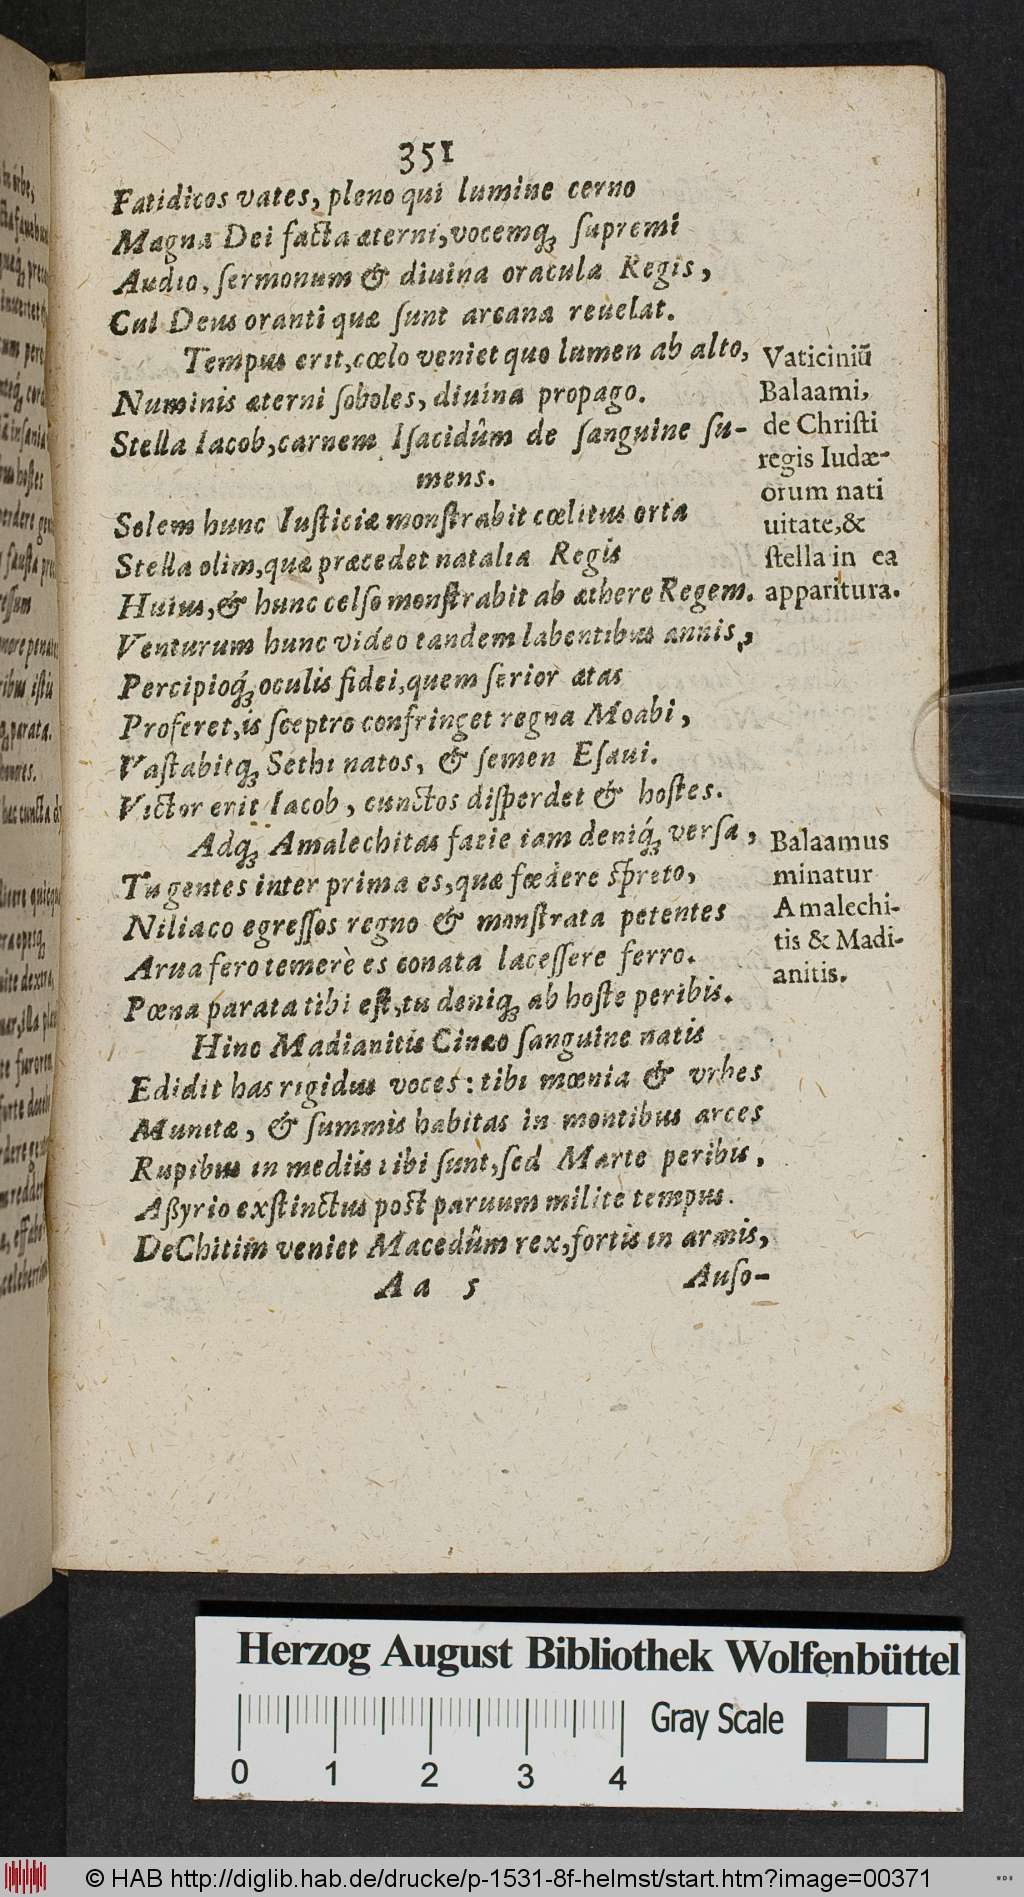 351
Fatidicos vates, pleno qui lumine cerno
Magna Dei facta æterni, vocemq́ꝫ ſupremi
Audio, ſermonum & diuina oracula Regis,
Cui Deus oranti quæ ſunt arcana reuelat.
Tempus erit, cœlo veniet quo lumen ab alto,
Numinis æterni ſoboles, diuina propago.
Stella Iacob, carnem Iſacidûm de ſanguine ſu-
mens.
Solem hunc Iuſticiæ monſtrabit cœlitus orta
Stella olim, quæ præcedet natalia Regis
Huius, & hunc celſo monſtrabit ab æthere Regem.
Venturum hunc video tandem labentibus annis,
Percipioq́ꝫ oculis fidei, quem ſerior ætas
Proferet, is ſceptro confringet regna Moabi,
Vaſtabitqꝫ Sethi natos, & ſemen Eſaui.
Victor erit Iacob, cunctos diſperdet & hoſtes.
Adqꝫ Amalechitas facie iam deniq́ꝫ verſa,
Tu gentes inter prima es, quæ fœdere ſpreto,
Niliaco egreſſos regno & monſtrata petentes
Arua fero temerè es conata laceſſere ferro.
Pœna parata tibi eſt, tu deniqꝫ ab hoſte peribis.
Hinc Madianitis Cinæo ſanguine natis
Edidit has rigidus voces: tibi mœnia & vrbes
Munitæ, & ſummis habitas in montibus arces
Rupibus in mediis tibi ſunt, ſed Marte peribis,
Aßyrio exſtinctus poſt paruum milite tempus.
De Chitim veniet Macedûm rex, fortis in armis,
A a 5 Auſo-
Vaticiniũ
Balaami,
de Chriſti
regis Iudæ-
orum nati
uitate, &
ſtella in ea
apparitura.
Balaamus
minatur
Amalechi-
tis & Madi-
anitis.
Herzog August Bibliothek Wolfenbüttel
0 1 2 3 4
Gray Scale
© HAB http://diglib.hab.de/drucke/p-1531-8f-helmst/start.htm?image=00371